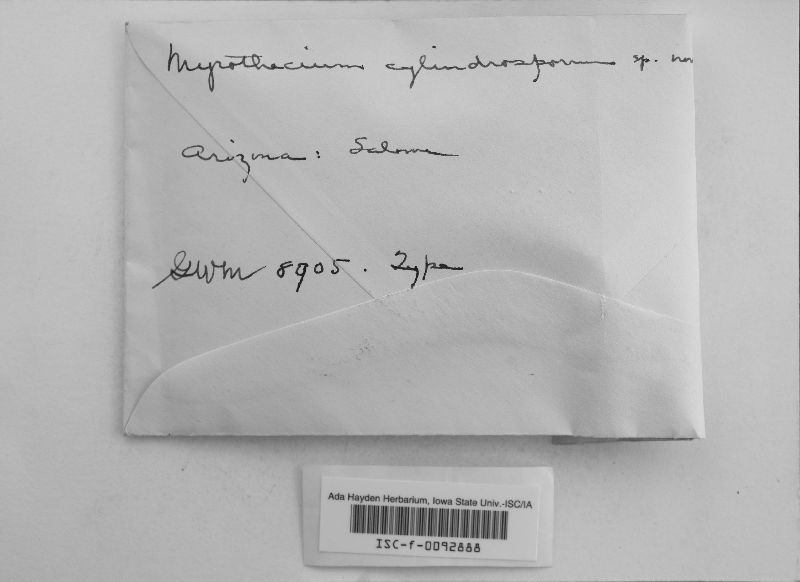 Myrothecium cylindrosporum sp. nov
Arizona: Salome
GWM 8905. Type
Ada Hayden Herbarium, Iowa State Univ.-ISC/IA
ISC-f-0092888